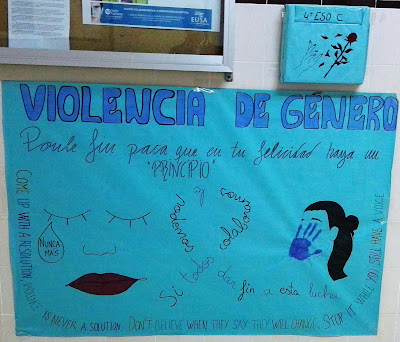 EUSA
4º ESO C
VIOLENCIA DE GÉNERO
Ponle fin para que en tu felicidad haya un
"PRINCIPIO"
NUNCA
MÁS
Si todos colaboramos
dar fin a esta lucha
COME UP WITH A RESOLUTION, VIOLENCE
IS NEVER A SOLUTION. DON'T BELIEVE WHEN THEY SAY THEY WILL CHANGE.
STOP IT WHILE YOU STILL HAVE A VOICE